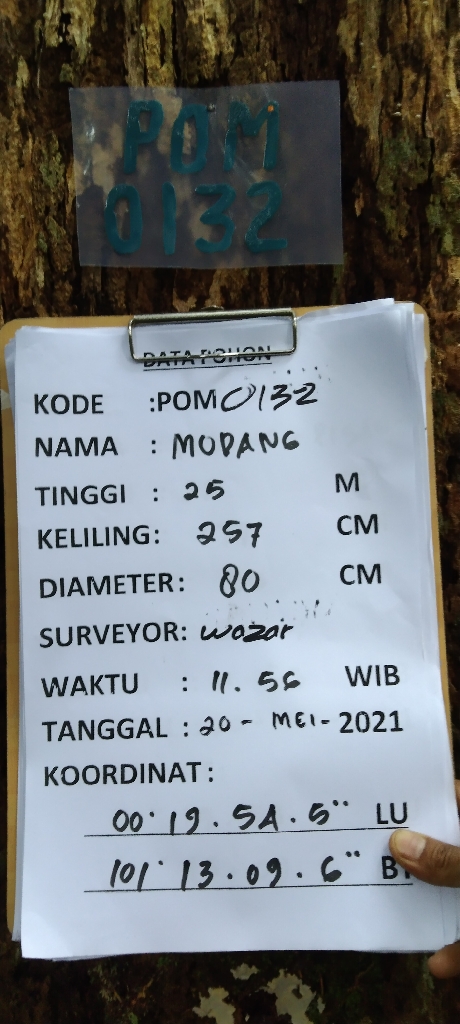 POM
0132
DATA POHON
KODE :POM 0132
NAMA : MODANG
TINGGI : 25 M
KELILING: 257 CM
DIAMETER: 80 CM
SURVEYOR: wazar
WAKTU : 11. 56 WIB
TANGGAL : 20 - MEI - 2021
KOORDINAT:
00° 19. 54. 5" LU
101° 13. 09. 6" B